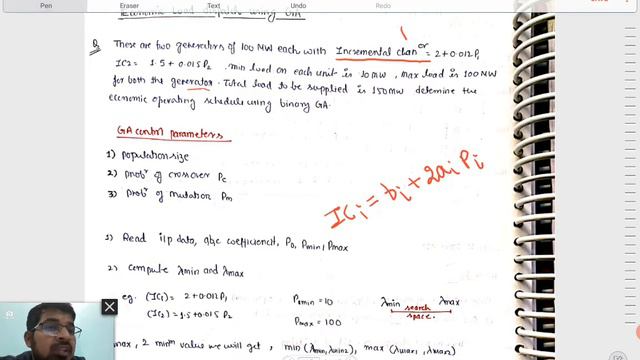 Pen Eraser Text Undo Redo
Economic Load Dispatch using GA
Q. There are two generators of 100 MW each with Incremental char or
= 2+0.012P1
IC2 = 1.5 + 0.015 P2. min load on each unit is 10 MW, max load is 100 MW
for both the generator. Total load to be supplied is 150 MW determine the
economic operating schedule using binary GA.
GA control parameters
1) population size
2) prob of crossover Pc
3) prob of mutation Pm
ICi = bi + 2ai Pi
1) Read i/p data, abc coefficient, PD, Pmin, Pmax
2) compute λmin and λmax
eg. (IC1) = 2+0.012P1 Pmin = 10 λmin λmax
(IC2) = 1.5+0.015 P2 Pmax = 100 search
space.
max, 2 min value we will get, min(λmin1, λmin2), max(λmax1, λmax2)